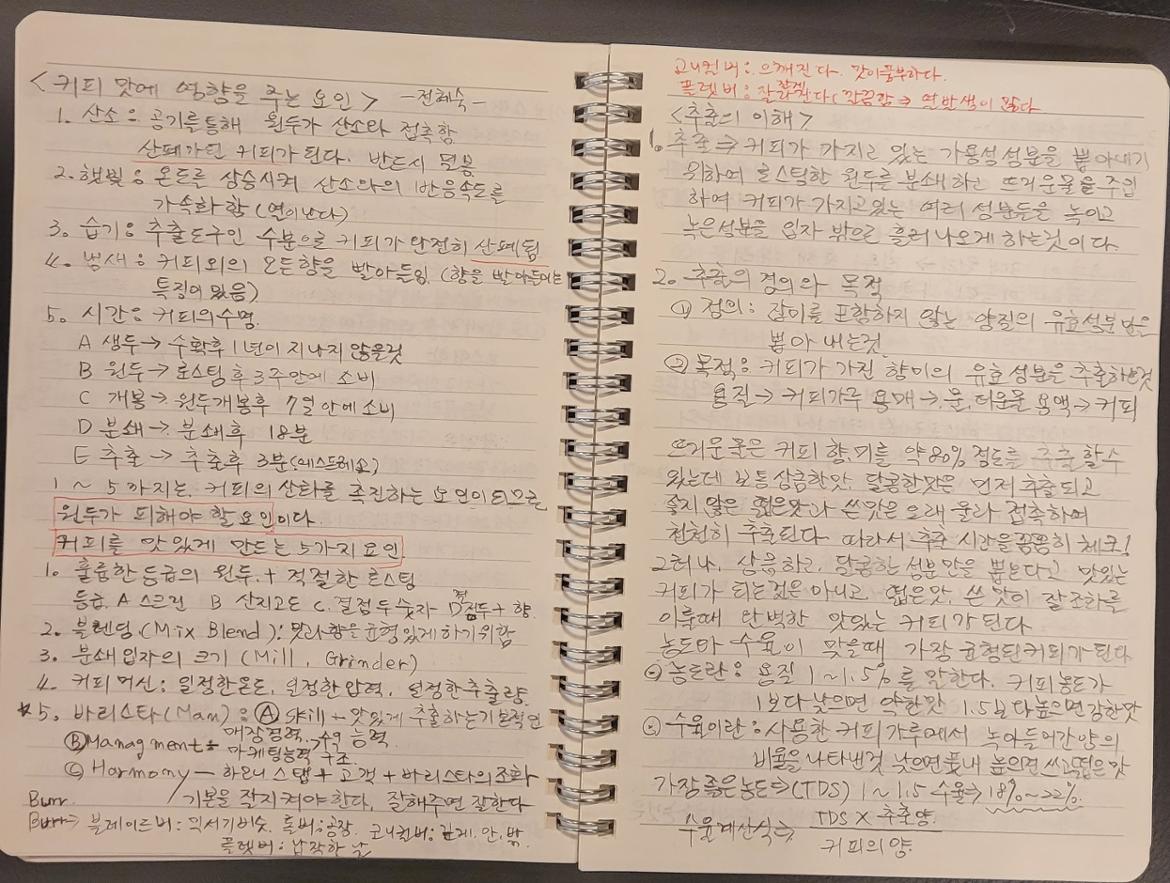 <커피 맛에 영향을 주는 요인> -전혜숙-
1. 산소 : 공기를통해 원두가 산소와 접촉함
산패가된 커피가 된다. 반드시 밀봉
2. 햇빛 : 온도를 상승시켜 산소와의 반응속도를
가속화함 (연이난다)
3. 습기 : 추출도구인 수분으로 커피가 완전히 산패됨
4. 냄새 : 커피외의 모든향을 빨아들임 (향을 빨아들이는
특징이 있음)
5. 시간 : 커피의수명.
A 생두→ 수확후 1년이 지나지 않을것
B 원두→ 로스팅후 3주안에 소비
C 개봉→ 원두개봉후 7일안에소비
D 분쇄→ 분쇄후 18분
E 추출 → 추출후 3분(에스프레소)
1 ~ 5 까지는 커피의 산화를 촉진하는 요인이므로
원두가 피해야 할 요인이다
커피를 맛있게 만드는 5가지 요인
1. 훌륭한 등급의 원두 + 적절한 로스팅
등급. A 스크린 B 산지고도 C. 결점두숫자 D 점두 + 향.
2. 블렌딩 (Mix Blend) : 맛과향을 균형있게 하기위함
3. 분쇄입자의 크기 (Mill, Grinder)
4. 커피머신 : 일정한온도, 일정한압력, 일정한추출량.
*5. 바리스타(Man) : Ⓐ skill - 맛있게 추출하는기본적인
Ⓑ Managment - 매장경력, 능력.
마케팅능력 구조.
Ⓒ Harmony — 하모니 스탭 + 고객 + 바리스타의조화
기본을 잘지켜야한다, 잘해주면 잘한다
Burr.
Burr→ 블레이드버 : 믹서기버섯. 롤버 : 공장. 코니컬버 : 안. 밖.
플렛버 : 납작한 날
코니컬 버 : 으깨진다. 맛이풍부하다.
플렛버 : 잘 (깔끔함 ⇒ 열발생이 많다
<추출의 이해>
1. 추출 ⇒ 커피가 가지고 있는 가용성성분을 뽑아내기
위하여 로스팅한 원두를 분쇄하고 뜨거운물을주입
하여 커피가 가지고있는 여러 성분들을 녹이고
녹은성분을 입자 밖으로 흘러나오게 하는것이다.
2. 추출의 정의와 목적
① 정의 : 잡미를 포함하지 않는 양질의 유효성분만을
뽑아 내는것.
② 목적 : 커피가 가진 향미의 유효성분을 추출하는것
용질→ 커피가루 용매→ 물, 더운물 용액→ 커피
뜨거운 물은 커피 향미를 약80% 정도를 추출할수
있는데 보통 상큼한맛. 달콤한맛은 먼저추출되고
좋지 않은 떫은맛과 쓴맛은 오래 물과 접촉하여
천천히 추출된다. 따라서 추출 시간을꼼꼼히 체크!
그러나, 상큼하고, 달콤한 성분만을 뽑는다고 맛있는
커피가 되는것은 아니고 떫은맛, 쓴 맛이 잘조화를
이룰때 완벽한 맛있는 커피가 된다
농도와 수율이 맞을때 가장 균형된커피가 된다
㉠ 농도란 : 용질 1~1.5%를 말한다. 커피농도가
1보다낮으면 약한맛 1.5보다높으면강한맛
㉡ 수율이란 : 사용한 커피가루에서 녹아들어간양의
비율을 나타낸것 낮으면풋내 높으면 쓰고떫은맛
가장 좋은농도⇒(TDS) 1 ~ 1.5 수율⇒ 18%~22%.
수율계산식⇒ TDS X 추출양.
커피의양